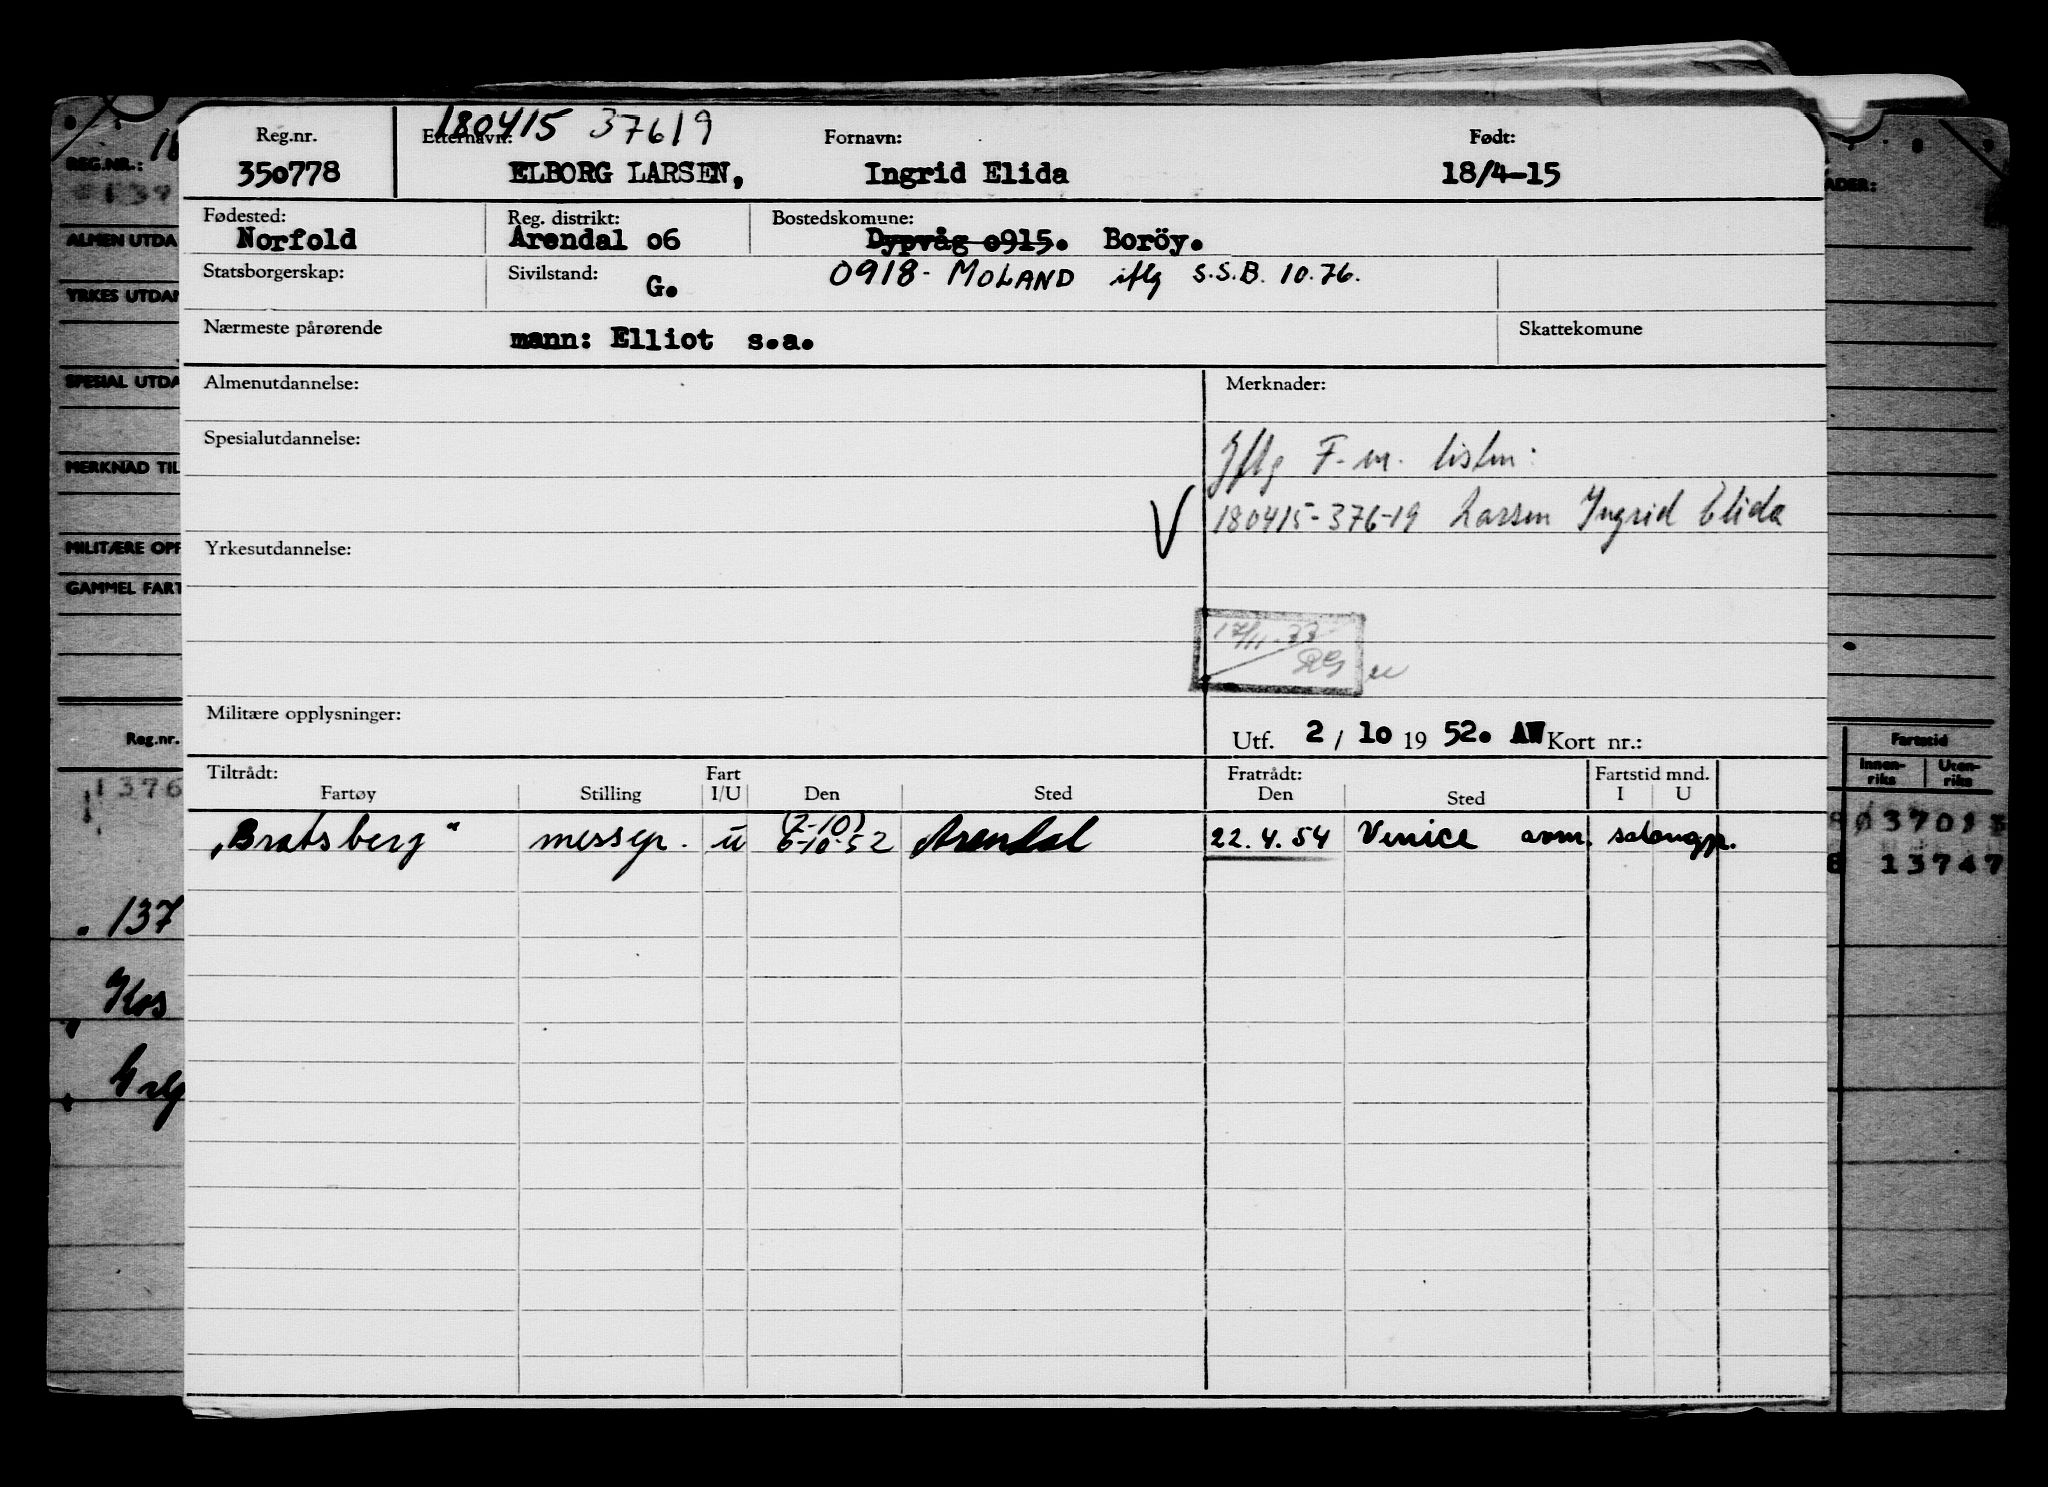 180415 37619
Reg.nr. Etternavn: Fornavn: Født:
350778 ELBORG LARSEN, Ingrid Elida 18/4-15
Fødested: Reg. distrikt: Bostedskomune:
Norfold Arendal o6 Dypvåg o915. Boröy.
Statsborgerskap: Sivilstand: G. 0918- MOLAND iflg S.S.B. 10.76.
Nærmeste pårørende mann: Elliot s.a. Skattekomune
Almenutdannelse: Merknader:
Spesialutdannelse: Iflg F.m. listen:
V 180415-376-19 Larsen Ingrid Elida
Yrkesutdannelse:
17/11-77
Militære opplysninger:
Utf. 2/ 10 19 52. AW Kort nr.:
Tiltrådt: Fart Fratrådt: Fartstid mnd.
Fartøy Stilling I/U Den Sted Den Sted I U
(2-10)
„Bratsberg" messep. u 6-10-52 Arendal 22.4.54 Venice avm. salongp.
REG.NR.: 18
ALMEN UTDA
YRKES UTDAN
SPESIAL UTDA
MERKNAD TIL
MILITÆRE OPP
GAMMEL FART
Reg.nr.
1376
137
Kos
ADER:
Fartstid
Innen-riks Uten-riks
13747